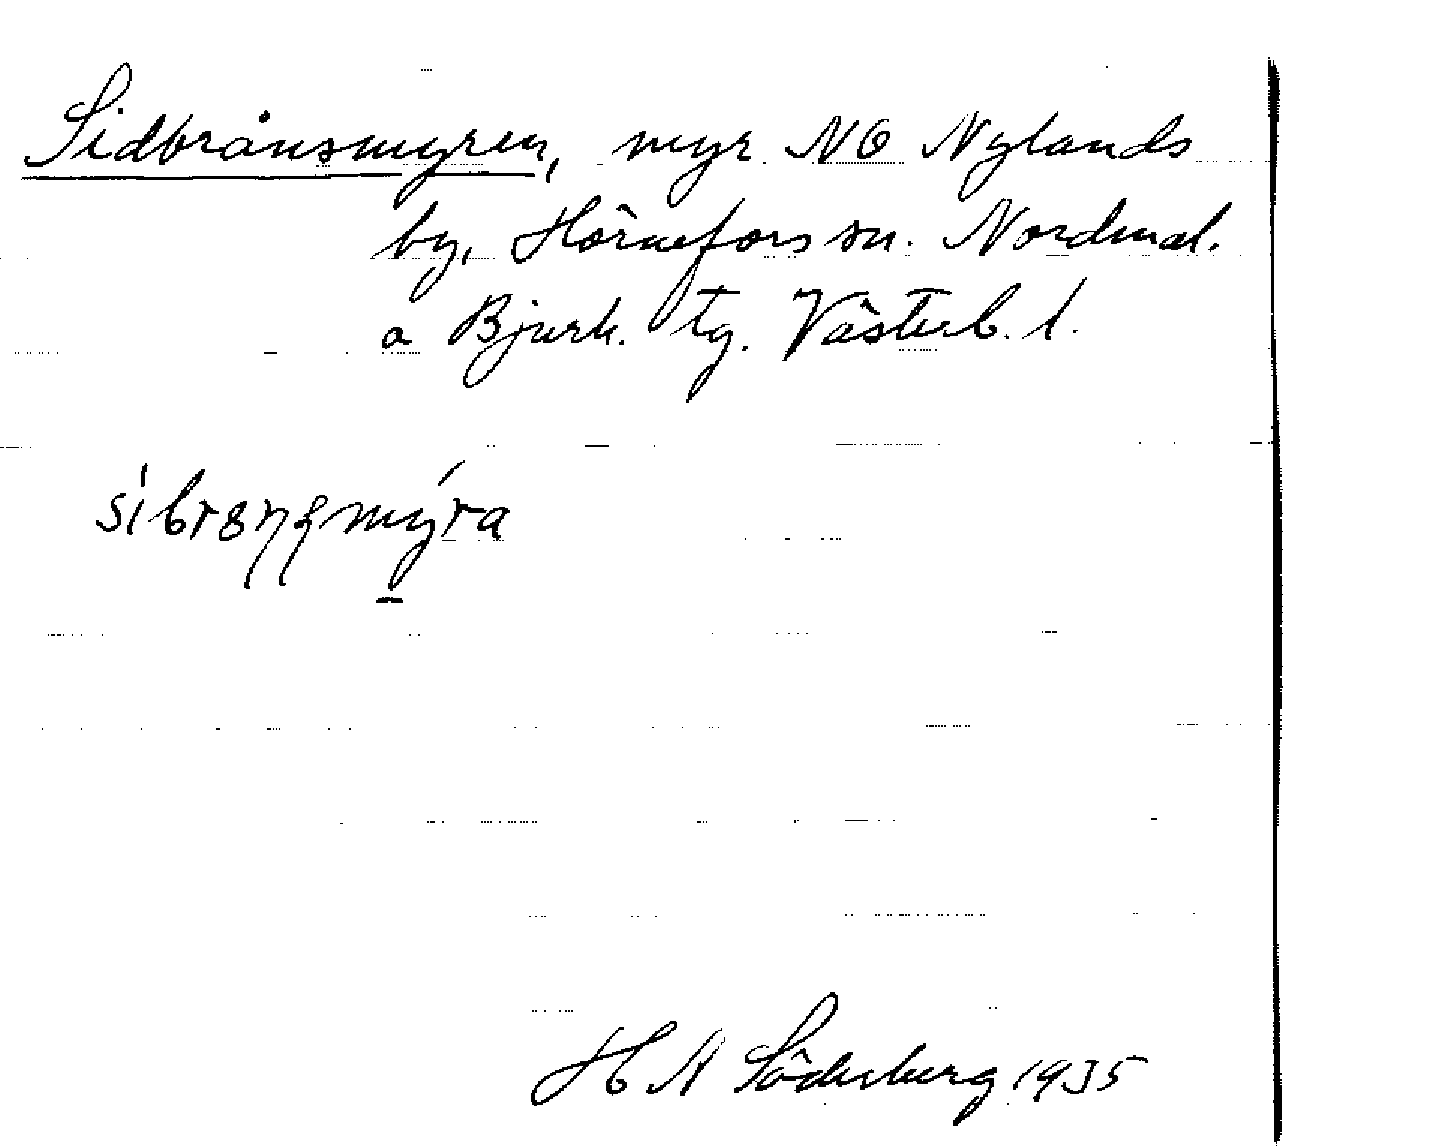 Sidbrånsmyren, myr NO Nylands
by, Hörnefors sn. Nordmal.
o Bjurh. tg. Västerb. l.
H N Söderberg 1935